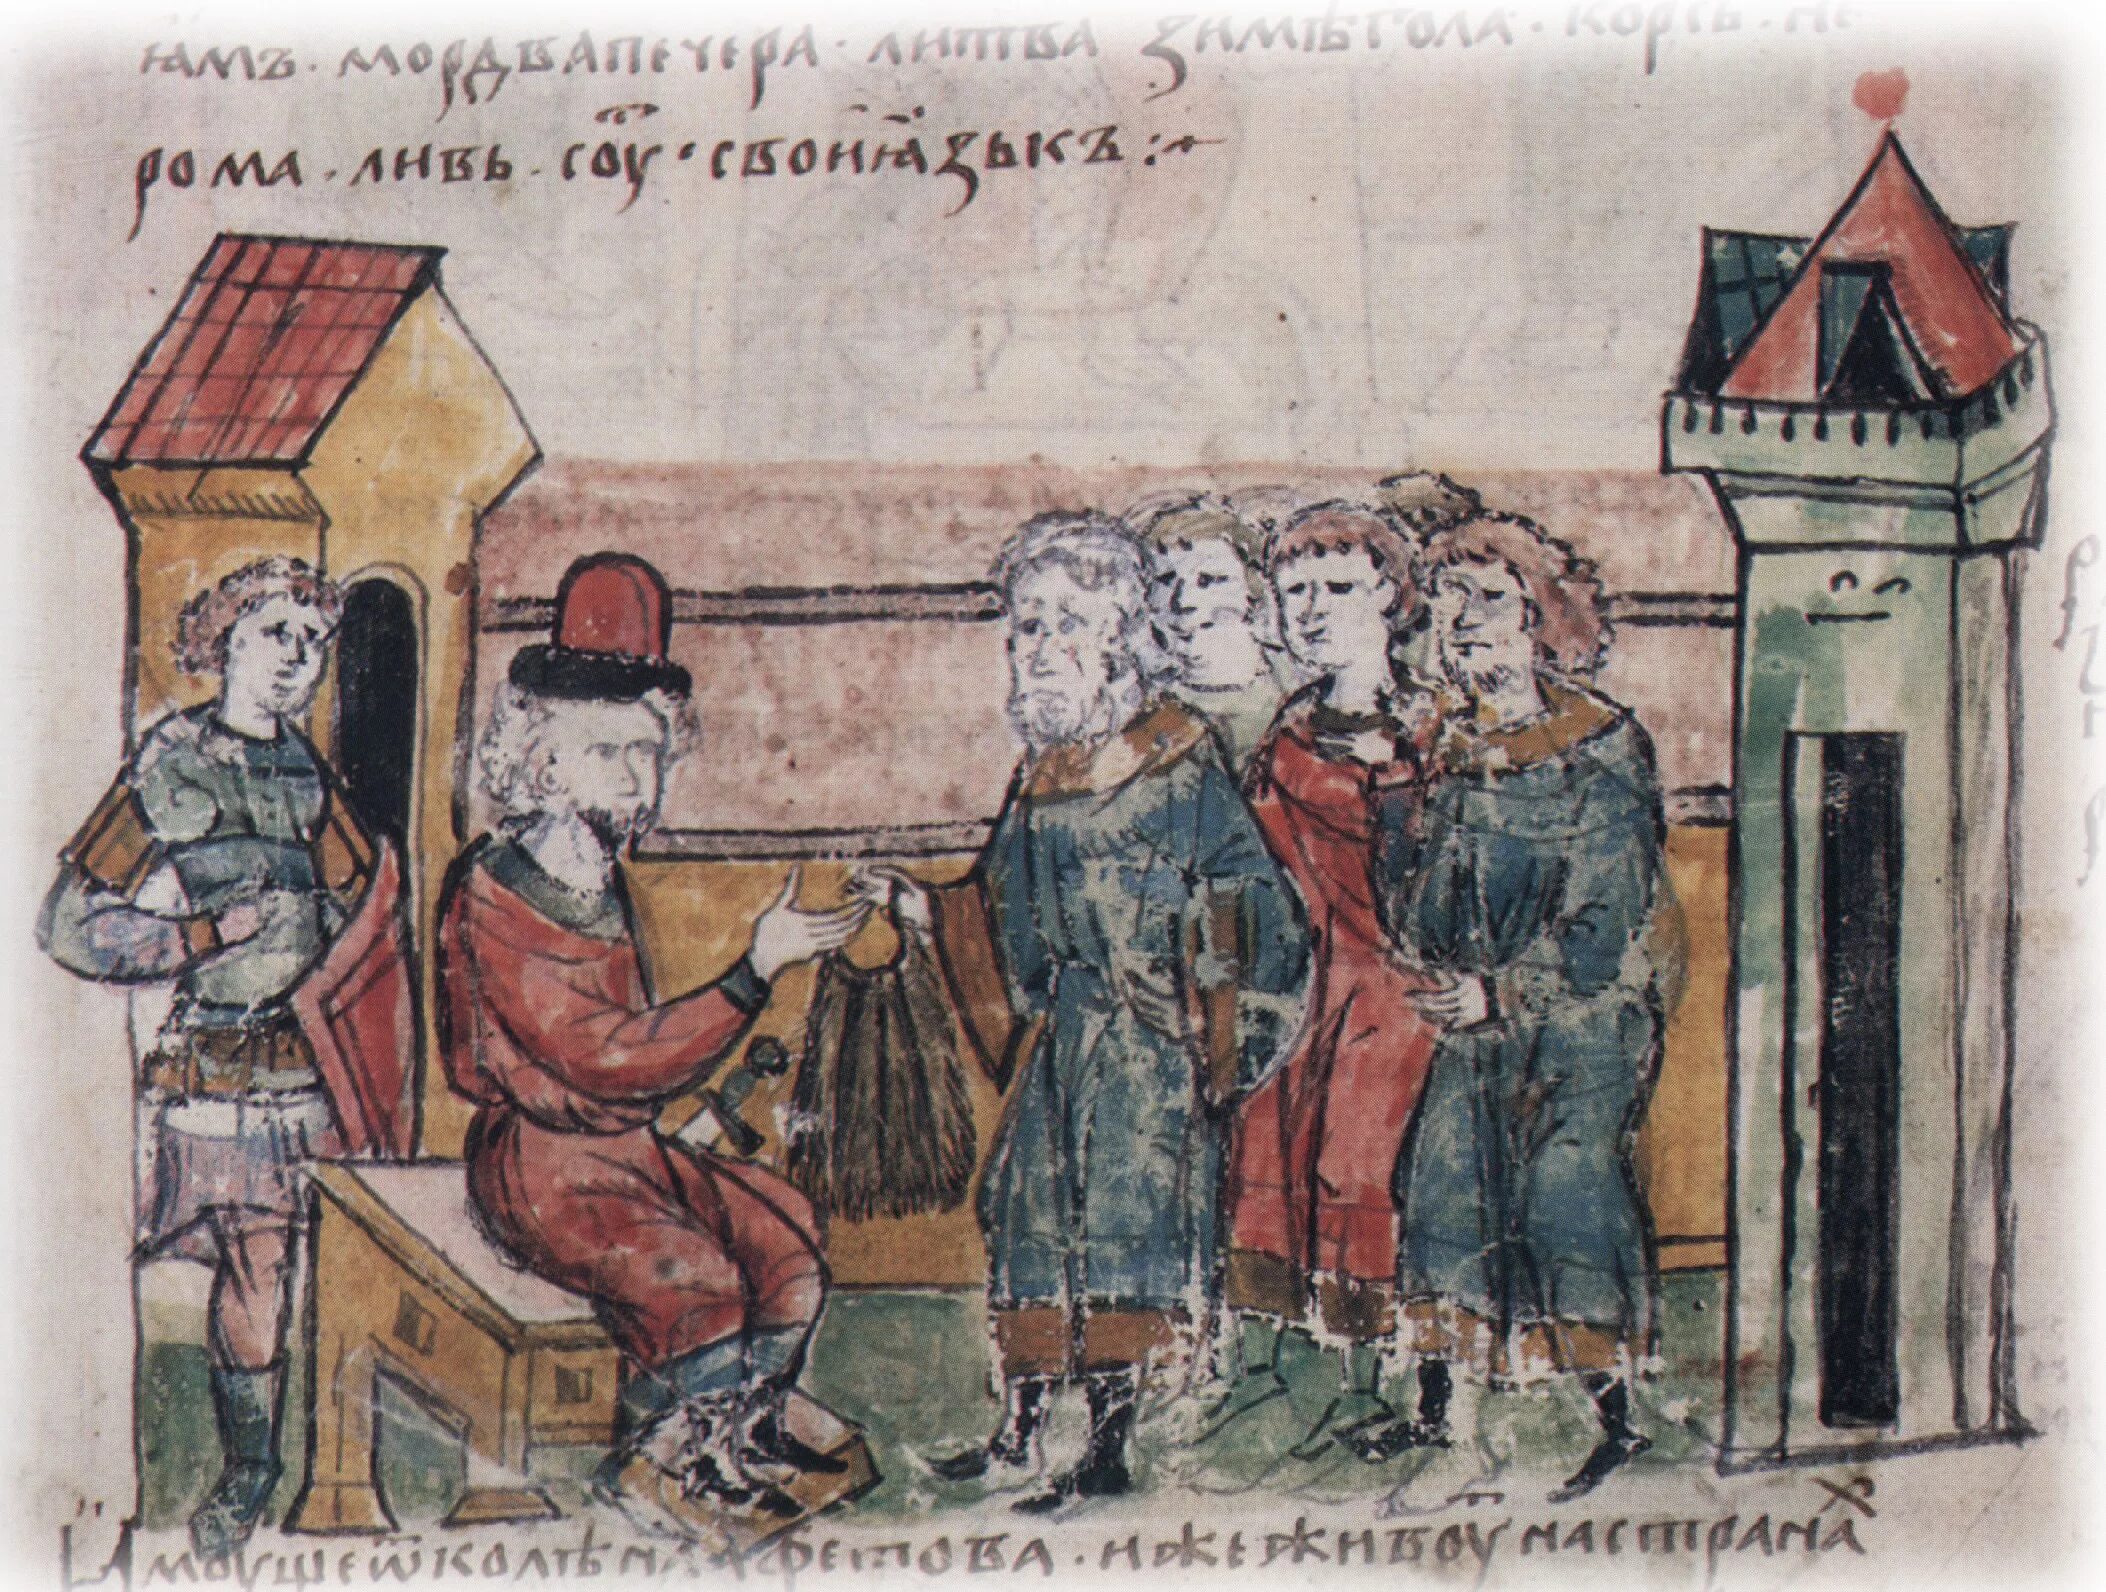 ꙗмъ · мордва печера · литва зимѣгола · корсь · не
рома · либь · соу҃ · свои ꙗзыкъ :~
ꙇмоуще ѿ колѣна афетова · иже живоу на странах